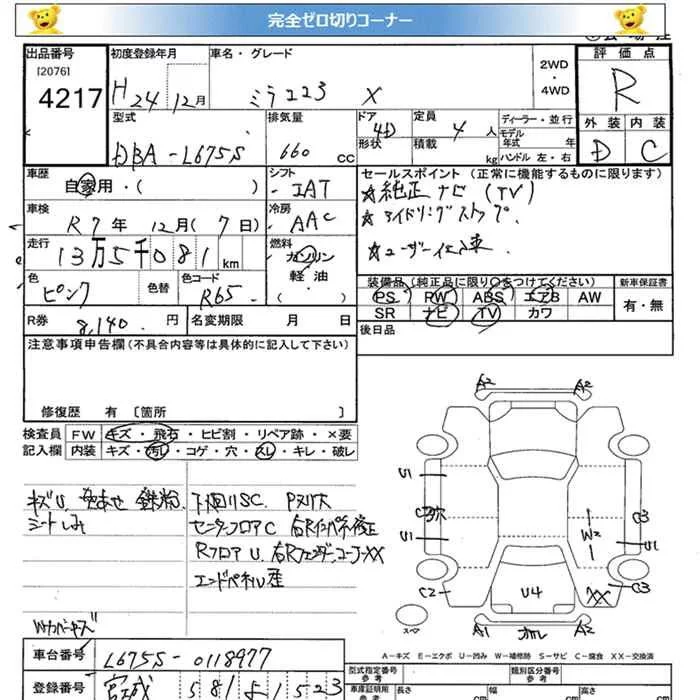 完全ゼロ切りコーナー
出品番号 初度登録年月 車名・グレード 評価点
[2076]
4217 H24年12月 ミラココア X 2WD・4WD R
型式 排気量 ドア 定員 ディーラー・並行 外装 内装
DBA-L675S 660 CC 4D 4人 モデル年式 年 D C
形状 積載 kg ハンドル 左・右
車歴 シフト セールスポイント(正常に機能するものに限ります)
自家用・( ) IAT ★純正ナビ(TV)
車検 冷房 ★アイドリングストップ
R7年12月(7日) AAC
走行 燃料 ★ユーザー仕入車
13万5千081km ガソリン
軽油
( )
色 色替 色コード 装備品(純正品に限り○をつけてください) 新車保証書
ピンク R65 PS PW ABS エアB AW 有・無
R券 8,140円 名変期限 月 日 SR ナビ TV カワ
後日品
注意事項申告欄(不具合内容等は具体的に記入して下さい)
修復歴 有 〔箇所 〕
検査員 FW キズ・飛石・ヒビ割・リペア跡・×要
記入欄 内装 キズ・汚レ・コゲ・穴・スレ・キレ・破レ
キズU 色あせ 鉄粉 下廻りSC
シートしみ センターフロアC 右Rインパネ修正
RフロアU 右Rフェンダーコーナー××
エンドパネル歪
A2 A2
U1 U1 W2 C3 U1
C2 U4 XX C3
A1
スペア
A-キズ E-エクボ U-凹み W-補修跡 S-サビ C-腐食 XX-交換済
車台番号 L675S-0118977
登録番号 宮城 581 51523
型式指定番号 参考 類別区分番号 参考
車庫証明用 参考 長さ cm 幅 cm 高さ cm